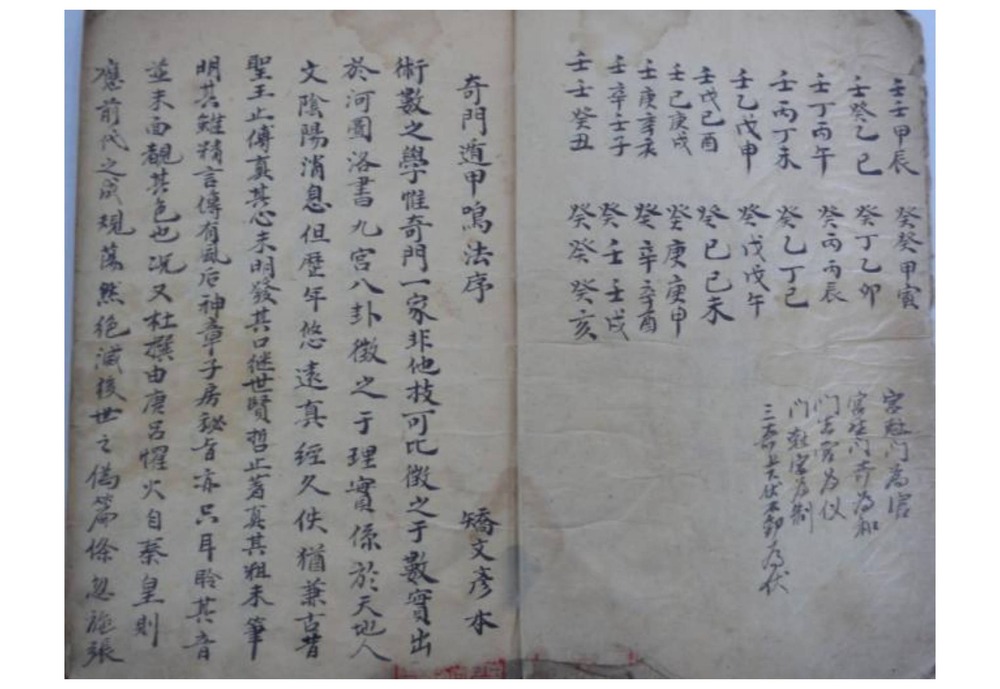 壬壬甲辰 癸癸甲寅
壬癸乙巳 癸丁乙卯
壬丁丙午 癸丙丙辰
壬丙丁未 癸乙丁巳
壬乙戊申 癸戊戊午
壬戊己酉 癸己己未
壬己庚戌 癸庚庚申
壬庚辛亥 癸辛辛酉
壬辛壬子 癸壬壬戌
壬壬癸丑 癸癸癸亥
宮尅门為
宮生门為和
门宮為
门尅宮為制
奇門遁甲鳴法序 矯文彥本
術數之學惟奇門一家非他技可比徵之于數實出
於河圖洛書九宮八卦徵之于理實係於天地人
文陰陽消息但歷年悠遠真經久佚猶兼古昔
聖王止傳真其心未明發其口継世賢哲止著真其粗未筆
明其雖精言傳有風后神章子房秘旨亦只耳聆其音
並未面覩其色也况又杜撰由唐呂懼火自秦皇則
應前代之成規蕩然絶滅後世之偽篇倐忽施張